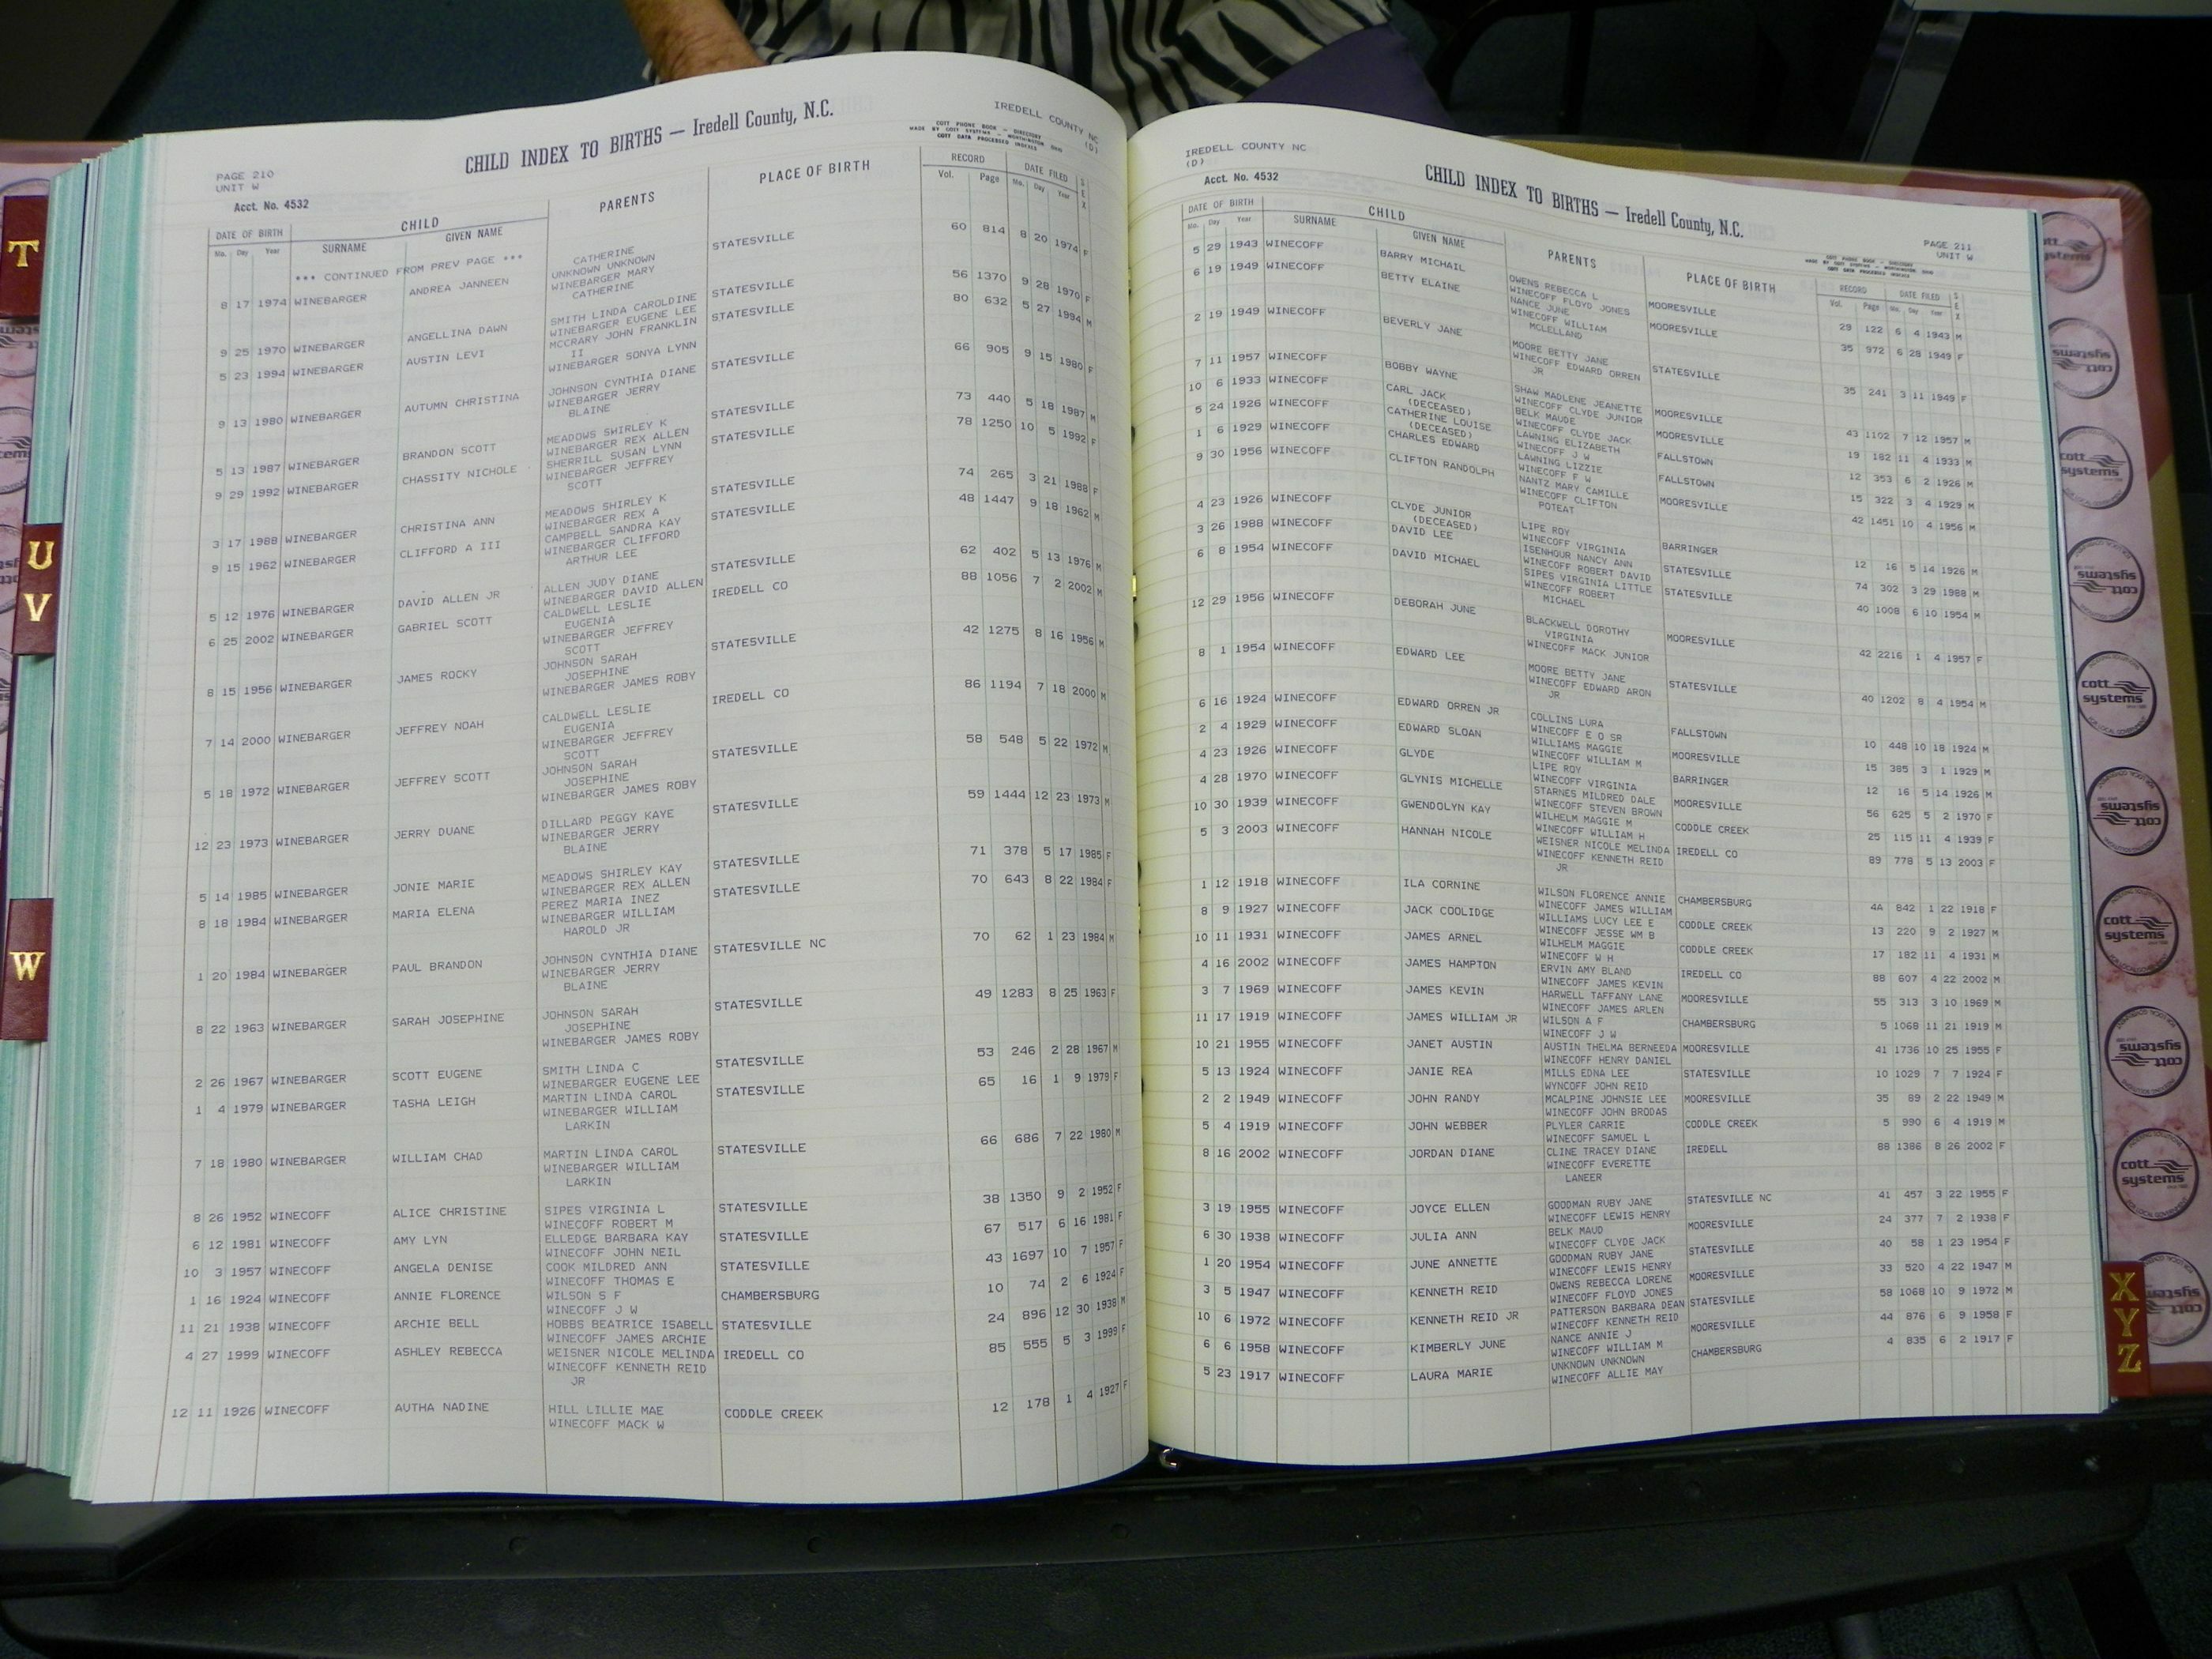 T
U
V
W
PAGE 210
UNIT W
Acct. No. 4532
CHILD INDEX TO BIRTHS — Iredell County, N.C.
IREDELL COUNTY NC
(D)
COTT PHONE BOOK - DIRECTORY
MADE BY COTT SYSTEMS - WORTHINGTON OHIO
COTT DATA PROCESSED INDEXES
DATE OF BIRTH CHILD PARENTS PLACE OF BIRTH RECORD DATE FILED SEX
Mo. Day Year SURNAME GIVEN NAME Vol. Page Mo. Day Year
*** CONTINUED FROM PREV PAGE ***
CATHERINE
8 17 1974 WINEBARGER ANDREA JANNEEN UNKNOWN UNKNOWN STATESVILLE 60 814 8 20 1974 F
WINEBARGER MARY
CATHERINE
9 25 1970 WINEBARGER ANGELLINA DAWN SMITH LINDA CAROLDINE STATESVILLE 56 1370 9 28 1970 F
WINEBARGER EUGENE LEE
5 23 1994 WINEBARGER AUSTIN LEVI MCCRARY JOHN FRANKLIN STATESVILLE 80 632 5 27 1994 M
II
WINEBARGER SONYA LYNN
9 13 1980 WINEBARGER AUTUMN CHRISTINA JOHNSON CYNTHIA DIANE STATESVILLE 66 905 9 15 1980 F
WINEBARGER JERRY
BLAINE
5 13 1987 WINEBARGER BRANDON SCOTT MEADOWS SHIRLEY K STATESVILLE 73 440 5 18 1987 M
WINEBARGER REX ALLEN
9 29 1992 WINEBARGER CHASSITY NICHOLE SHERRILL SUSAN LYNN STATESVILLE 78 1250 10 5 1992 F
WINEBARGER JEFFREY
SCOTT
3 17 1988 WINEBARGER CHRISTINA ANN MEADOWS SHIRLEY K STATESVILLE 74 265 3 21 1988 F
WINEBARGER REX A
9 15 1962 WINEBARGER CLIFFORD A III CAMPBELL SANDRA KAY STATESVILLE 48 1447 9 18 1962 M
WINEBARGER CLIFFORD
ARTHUR LEE
5 12 1976 WINEBARGER DAVID ALLEN JR ALLEN JUDY DIANE STATESVILLE 62 402 5 13 1976 M
WINEBARGER DAVID ALLEN
6 25 2002 WINEBARGER GABRIEL SCOTT CALDWELL LESLIE IREDELL CO 88 1056 7 2 2002 M
EUGENIA
WINEBARGER JEFFREY
SCOTT
8 15 1956 WINEBARGER JAMES ROCKY JOHNSON SARAH STATESVILLE 42 1275 8 16 1956 M
JOSEPHINE
WINEBARGER JAMES ROBY
7 14 2000 WINEBARGER JEFFREY NOAH CALDWELL LESLIE IREDELL CO 86 1194 7 18 2000 M
EUGENIA
WINEBARGER JEFFREY
SCOTT
5 18 1972 WINEBARGER JEFFREY SCOTT JOHNSON SARAH STATESVILLE 58 548 5 22 1972 M
JOSEPHINE
WINEBARGER JAMES ROBY
12 23 1973 WINEBARGER JERRY DUANE DILLARD PEGGY KAYE STATESVILLE 59 1444 12 23 1973 M
WINEBARGER JERRY
BLAINE
5 14 1985 WINEBARGER JONIE MARIE MEADOWS SHIRLEY KAY STATESVILLE 71 378 5 17 1985 F
WINEBARGER REX ALLEN
8 18 1984 WINEBARGER MARIA ELENA PEREZ MARIA INEZ STATESVILLE 70 643 8 22 1984 F
WINEBARGER WILLIAM
HAROLD JR
1 20 1984 WINEBARGER PAUL BRANDON JOHNSON CYNTHIA DIANE STATESVILLE NC 70 62 1 23 1984 M
WINEBARGER JERRY
BLAINE
8 22 1963 WINEBARGER SARAH JOSEPHINE JOHNSON SARAH STATESVILLE 49 1283 8 25 1963 F
JOSEPHINE
WINEBARGER JAMES ROBY
2 26 1967 WINEBARGER SCOTT EUGENE SMITH LINDA C STATESVILLE 53 246 2 28 1967 M
WINEBARGER EUGENE LEE
1 4 1979 WINEBARGER TASHA LEIGH MARTIN LINDA CAROL STATESVILLE 65 16 1 9 1979 F
WINEBARGER WILLIAM
LARKIN
7 18 1980 WINEBARGER WILLIAM CHAD MARTIN LINDA CAROL STATESVILLE 66 686 7 22 1980 M
WINEBARGER WILLIAM
LARKIN
8 26 1952 WINECOFF ALICE CHRISTINE SIPES VIRGINIA L STATESVILLE 38 1350 9 2 1952 F
WINECOFF ROBERT M
6 12 1981 WINECOFF AMY LYN ELLEDGE BARBARA KAY STATESVILLE 67 517 6 16 1981 F
WINECOFF JOHN NEIL
10 3 1957 WINECOFF ANGELA DENISE COOK MILDRED ANN STATESVILLE 43 1697 10 7 1957 F
WINECOFF THOMAS E
1 16 1924 WINECOFF ANNIE FLORENCE WILSON S F CHAMBERSBURG 10 74 2 6 1924 F
WINECOFF J W
11 21 1938 WINECOFF ARCHIE BELL HOBBS BEATRICE ISABELL STATESVILLE 24 896 12 30 1938 M
WINECOFF JAMES ARCHIE
4 27 1999 WINECOFF ASHLEY REBECCA WEISNER NICOLE MELINDA IREDELL CO 85 555 5 3 1999 F
WINECOFF KENNETH REID
JR
12 11 1926 WINECOFF AUTHA NADINE HILL LILLIE MAE CODDLE CREEK 12 178 1 4 1927 F
WINECOFF MACK W
IREDELL COUNTY NC
(D)
Acct. No. 4532
CHILD INDEX TO BIRTHS — Iredell County, N.C.
PAGE 211
UNIT W
COTT PHONE BOOK - DIRECTORY
MADE BY COTT SYSTEMS - WORTHINGTON OHIO
COTT DATA PROCESSED INDEXES
DATE OF BIRTH CHILD PARENTS PLACE OF BIRTH RECORD DATE FILED SEX
Mo. Day Year SURNAME GIVEN NAME Vol. Page Mo. Day Year
5 29 1943 WINECOFF BARRY MICHAIL OWENS REBECCA L MOORESVILLE 29 122 6 4 1943 M
WINECOFF FLOYD JONES
6 19 1949 WINECOFF BETTY ELAINE NANCE JUNE MOORESVILLE 35 972 6 28 1949 F
WINECOFF WILLIAM
MCLELLAND
2 19 1949 WINECOFF BEVERLY JANE MOORE BETTY JANE STATESVILLE 35 241 3 11 1949 F
WINECOFF EDWARD ORREN
JR
7 11 1957 WINECOFF BOBBY WAYNE SHAW MADLENE JEANETTE MOORESVILLE 43 1102 7 12 1957 M
WINECOFF CLYDE JUNIOR
10 6 1933 WINECOFF CARL JACK BELK MAUDE MOORESVILLE 19 182 11 4 1933 M
(DECEASED) WINECOFF CLYDE JACK
5 24 1926 WINECOFF CATHERINE LOUISE LAWNING ELIZABETH FALLSTOWN 12 353 6 2 1926 M
(DECEASED) WINECOFF J W
1 6 1929 WINECOFF CHARLES EDWARD LAWNING LIZZIE FALLSTOWN 15 322 3 4 1929 M
WINECOFF F W
9 30 1956 WINECOFF CLIFTON RANDOLPH NANTZ MARY CAMILLE MOORESVILLE 42 1451 10 4 1956 M
WINECOFF CLIFTON
POTEAT
4 23 1926 WINECOFF CLYDE JUNIOR LIPE ROY BARRINGER 12 16 5 14 1926 M
(DECEASED) WINECOFF VIRGINIA
3 26 1988 WINECOFF DAVID LEE ISENHOUR NANCY ANN STATESVILLE 74 302 3 29 1988 M
WINECOFF ROBERT DAVID
6 8 1954 WINECOFF DAVID MICHAEL SIPES VIRGINIA LITTLE STATESVILLE 40 1008 6 10 1954 M
WINECOFF ROBERT
MICHAEL
12 29 1956 WINECOFF DEBORAH JUNE BLACKWELL DOROTHY MOORESVILLE 42 2216 1 4 1957 F
VIRGINIA
WINECOFF MACK JUNIOR
8 1 1954 WINECOFF EDWARD LEE MOORE BETTY JANE STATESVILLE 40 1202 8 4 1954 M
WINECOFF EDWARD ARON
JR
6 16 1924 WINECOFF EDWARD ORREN JR COLLINS LURA FALLSTOWN 10 448 10 18 1924 M
WINECOFF E O SR
2 4 1929 WINECOFF EDWARD SLOAN WILLIAMS MAGGIE MOORESVILLE 15 385 3 1 1929 M
WINECOFF WILLIAM M
4 23 1926 WINECOFF GLYDE LIPE ROY BARRINGER 12 16 5 14 1926 M
WINECOFF VIRGINIA
4 28 1970 WINECOFF GLYNIS MICHELLE STARNES MILDRED DALE MOORESVILLE 56 625 5 2 1970 F
WINECOFF STEVEN BROWN
10 30 1939 WINECOFF GWENDOLYN KAY WILHELM MAGGIE M CODDLE CREEK 25 115 11 4 1939 F
WINECOFF WILLIAM H
5 3 2003 WINECOFF HANNAH NICOLE WEISNER NICOLE MELINDA IREDELL CO 89 778 5 13 2003 F
WINECOFF KENNETH REID
JR
1 12 1918 WINECOFF ILA CORNINE WILSON FLORENCE ANNIE CHAMBERSBURG 4A 842 1 22 1918 F
WINECOFF JAMES WILLIAM
8 9 1927 WINECOFF JACK COOLIDGE WILLIAMS LUCY LEE E CODDLE CREEK 13 220 9 2 1927 M
WINECOFF JESSE WM B
10 11 1931 WINECOFF JAMES ARNEL WILHELM MAGGIE CODDLE CREEK 17 182 11 4 1931 M
WINECOFF W H
4 16 2002 WINECOFF JAMES HAMPTON ERVIN AMY BLAND IREDELL CO 88 607 4 22 2002 M
WINECOFF JAMES KEVIN
3 7 1969 WINECOFF JAMES KEVIN HARWELL TAFFANY LANE MOORESVILLE 55 313 3 10 1969 M
WINECOFF JAMES ARLEN
11 17 1919 WINECOFF JAMES WILLIAM JR WILSON A F CHAMBERSBURG 5 1068 11 21 1919 M
WINECOFF J W
10 21 1955 WINECOFF JANET AUSTIN AUSTIN THELMA BERNEEDA MOORESVILLE 41 1736 10 25 1955 F
WINECOFF HENRY DANIEL
5 13 1924 WINECOFF JANIE REA MILLS EDNA LEE STATESVILLE 10 1029 7 7 1924 F
WYNCOFF JOHN REID
2 2 1949 WINECOFF JOHN RANDY MCALPINE JOHNSIE LEE MOORESVILLE 35 89 2 22 1949 M
WINECOFF JOHN BRODAS
5 4 1919 WINECOFF JOHN WEBBER PLYLER CARRIE CODDLE CREEK 5 990 6 4 1919 M
WINECOFF SAMUEL L
8 16 2002 WINECOFF JORDAN DIANE CLINE TRACEY DIANE IREDELL 88 1386 8 26 2002 F
WINECOFF EVERETTE
LANEER
3 19 1955 WINECOFF JOYCE ELLEN GOODMAN RUBY JANE STATESVILLE NC 41 457 3 22 1955 F
WINECOFF LEWIS HENRY
6 30 1938 WINECOFF JULIA ANN BELK MAUD MOORESVILLE 24 377 7 2 1938 F
WINECOFF CLYDE JACK
1 20 1954 WINECOFF JUNE ANNETTE GOODMAN RUBY JANE STATESVILLE 40 58 1 23 1954 F
WINECOFF LEWIS HENRY
3 5 1947 WINECOFF KENNETH REID OWENS REBECCA LORENE MOORESVILLE 33 520 4 22 1947 M
WINECOFF FLOYD JONES
10 6 1972 WINECOFF KENNETH REID JR PATTERSON BARBARA DEAN STATESVILLE 58 1068 10 9 1972 M
WINECOFF KENNETH REID
6 6 1958 WINECOFF KIMBERLY JUNE NANCE ANNIE J MOORESVILLE 44 876 6 9 1958 F
WINECOFF WILLIAM M
5 23 1917 WINECOFF LAURA MARIE UNKNOWN UNKNOWN CHAMBERSBURG 4 835 6 2 1917 F
WINECOFF ALLIE MAY
X
Y
Z
cott
systems
cott
systems
cott
systems
cott
systems